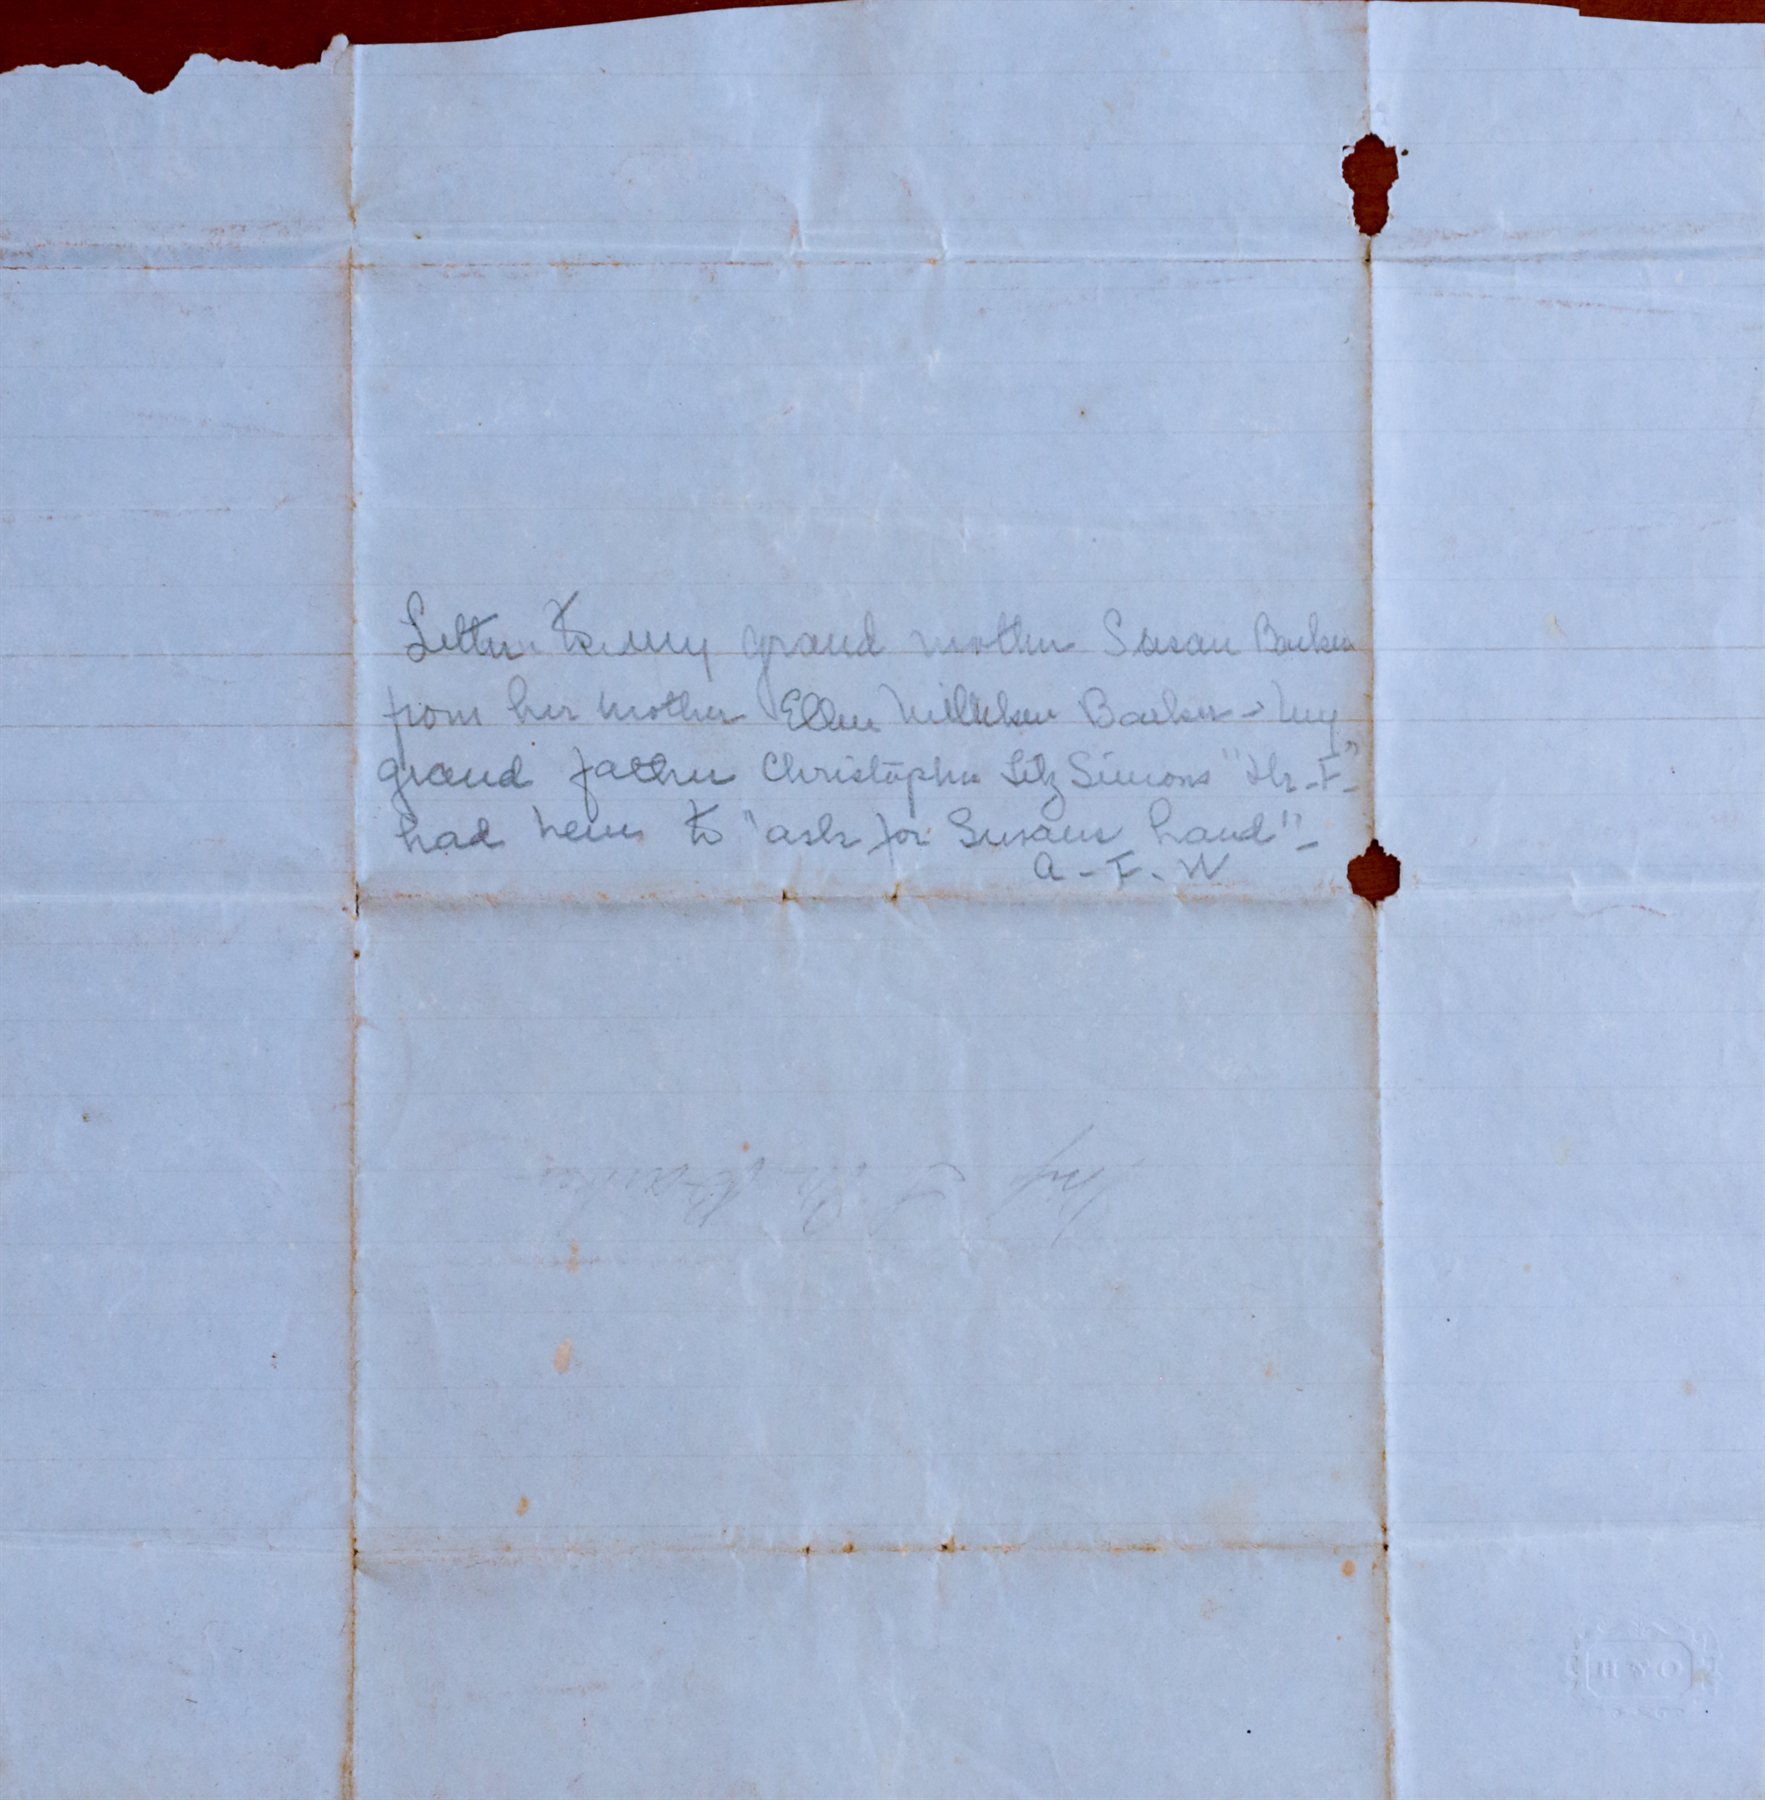 Letter to my grand mother Susan Barker
from her mother Ellen Milliken Barker - My
grand father Christopher Fitz Simons "Mr. F."
had been to "ask for Susans hand" -
A - F - W
Miss S. M. Barker